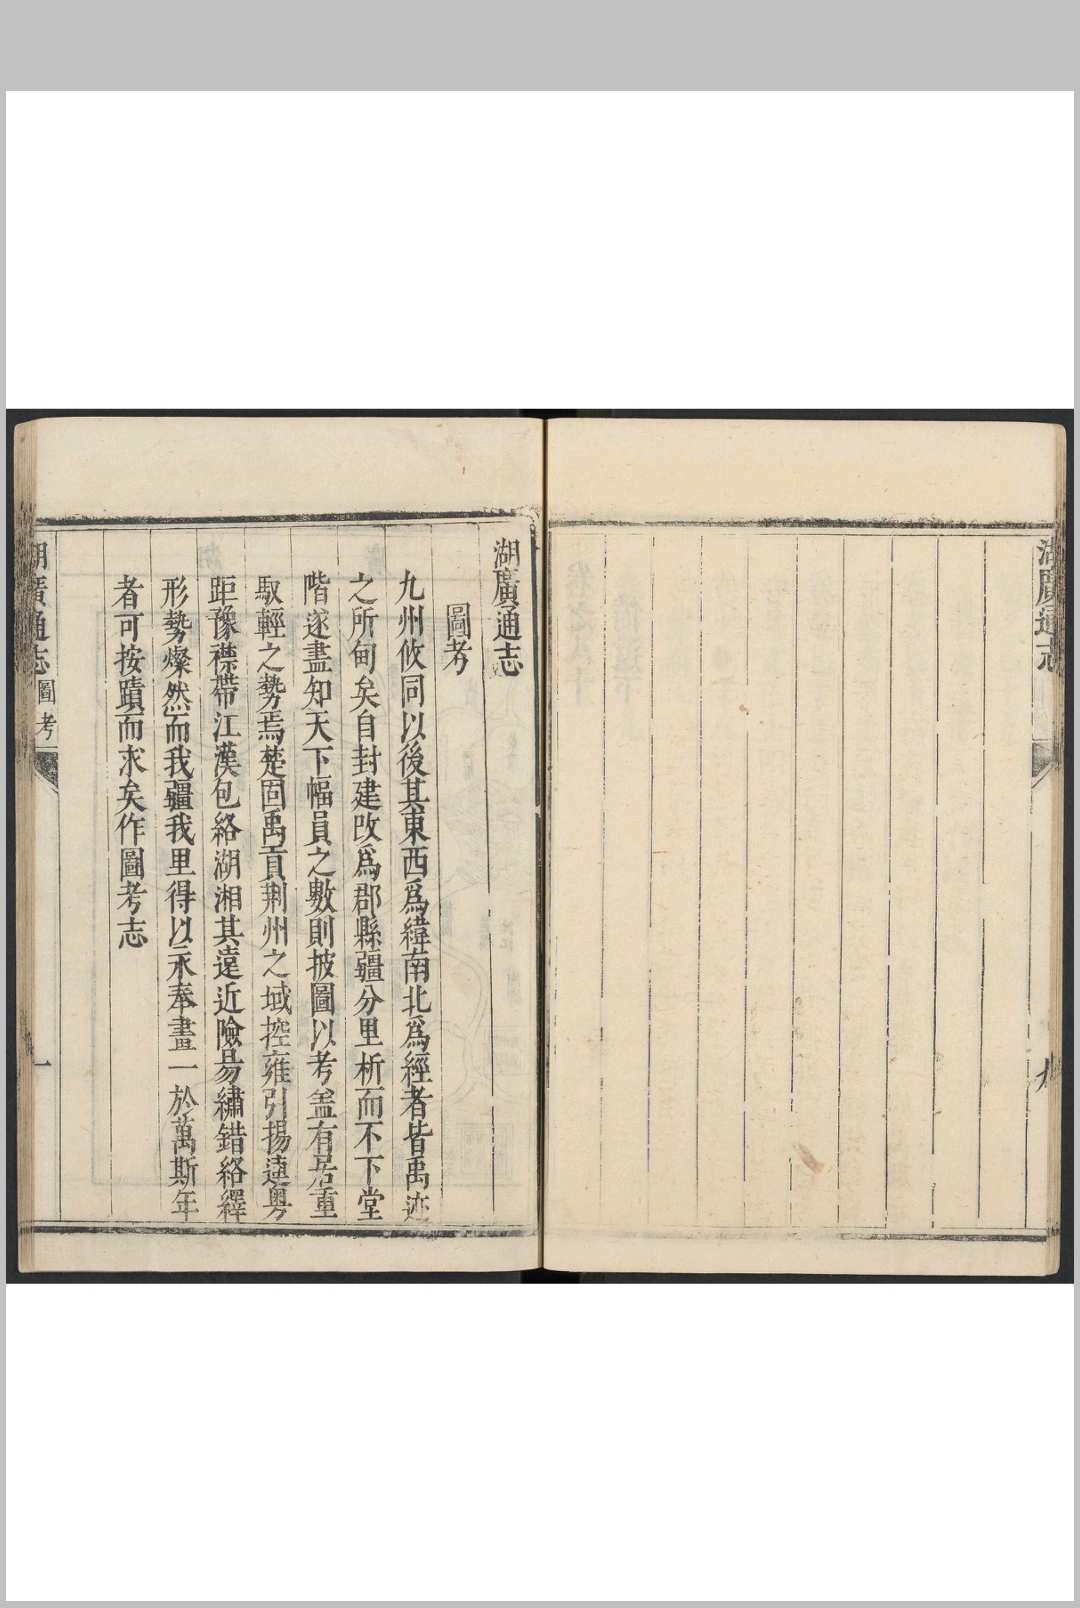 湖廣通志
九
湖廣通志
圖考
九州攸同以後其東西爲緯南北爲經者皆禹迹
之所甸矣自封建改爲郡縣疆分里析而不下堂
階遂盡知天下幅員之數則披圖以考盖有居重
馭輕之勢焉楚固禹貢荆州之域控雍引揚遶粤
距豫襟帶江漢包絡湖湘其遠近險易繡錯絡繹
形勢燦然而我疆我里得以永奉畫一於萬斯年
者可按蹟而求矣作圖考志
湖廣通志
圖考
一